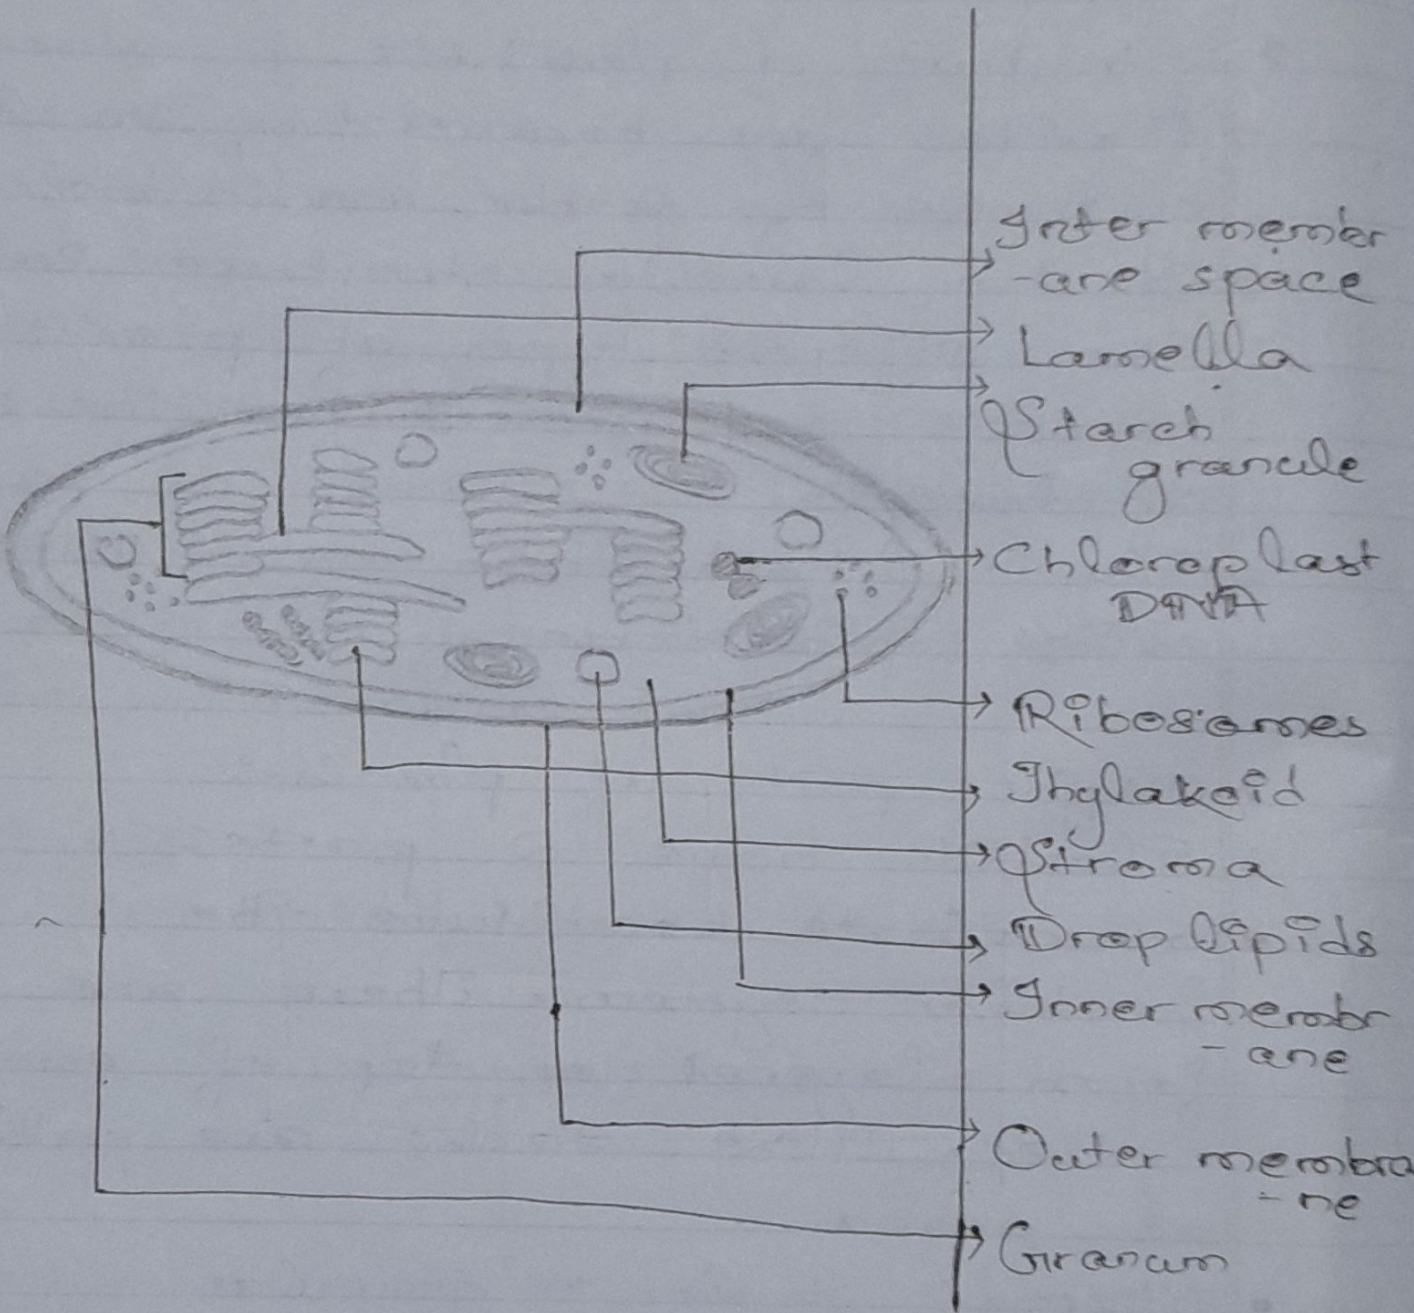 Inter membr
-ane space
Lamella
Starch
granule
Chloroplast
DNA
Ribosomes
Thylakoid
Stroma
Drop lipids
Inner membr
- ane
Outer membra
- ne
Granum